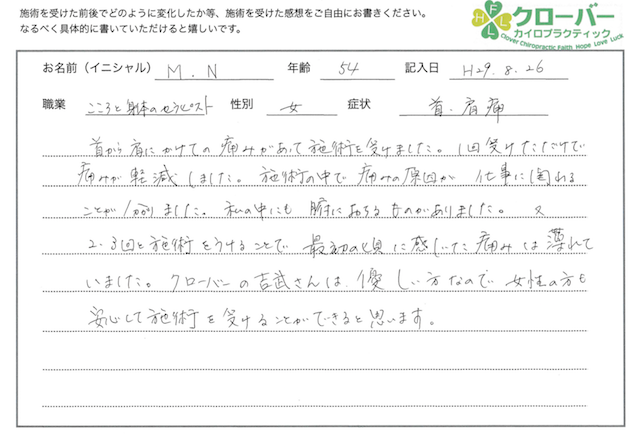 施術を受けた前後でどのように変化したか等、施術を受けた感想をご自由にお書きください。
なるべく具体的に書いていただけると嬉しいです。
HFLL
クローバー
カイロプラクティック
Clover Chiropractic Faith Hope Love Luck
お名前（イニシャル） M.N 年齢 54 記入日 H29.8.26
職業 こころと身体のセラピスト 性別 女 症状 首・肩痛
首から肩にかけての痛みがあって施術を受けました。1回受けただけで
痛みが軽減しました。施術の中で痛みの原因が仕事に関わる
ことが分かりました。私の中にも腑におちるものがありました。又
2、3回と施術をうけることで最初の頃に感じた痛みは薄れて
いました。クローバーの吉武さんは、優しい方なので女性の方も
安心して施術を受けることができると思います。